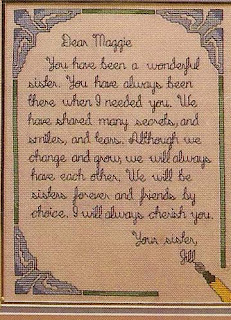 Dear Maggie
You have been a wonderful
sister. You have always been
there when I needed you. We
have shared many secrets, and
smiles, and tears. Although we
change and grow, we will always
have each other. We will be
sisters forever and friends by
choice. I will always cherish you.
Your sister,
Jill